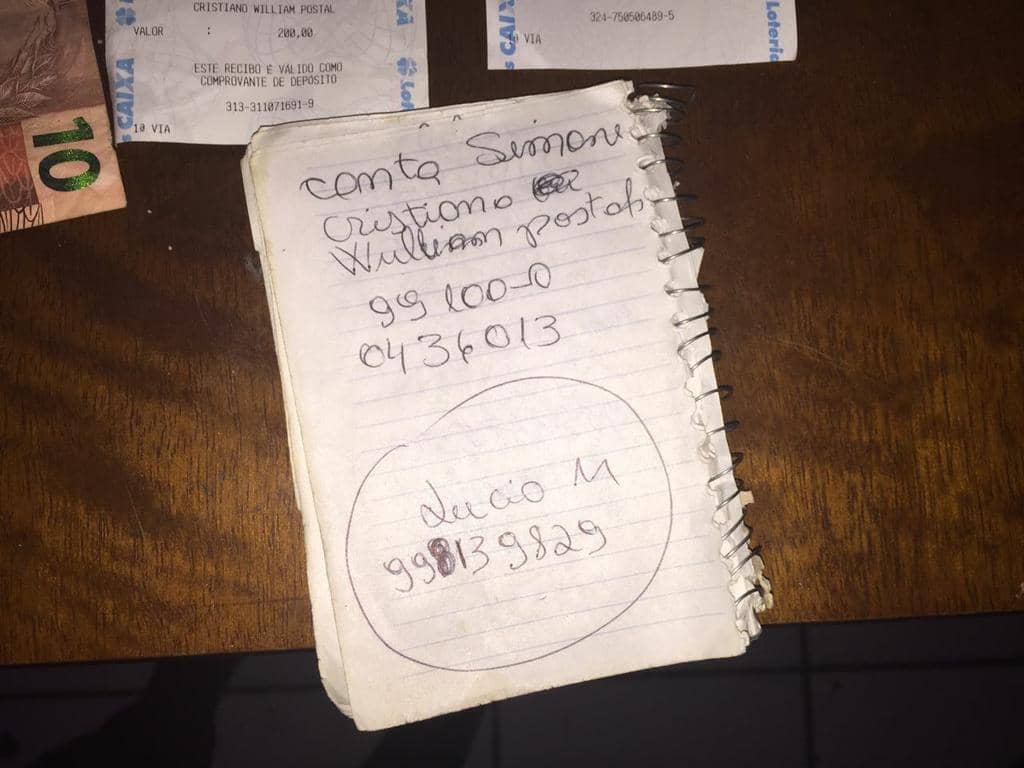 CRISTIANO WILLIAM POSTAL
VALOR : 200,00
ESTE RECIBO É VÁLIDO COMO
COMPROVANTE DE DEPÓSITO
313-311071691-9
1ª VIA
CAIXA
324-750506489-5
VIA
CAIXA
Loteria
10
conta Simone
Cristiano
William postal
99100-0
0436013
Lucio M
998139829